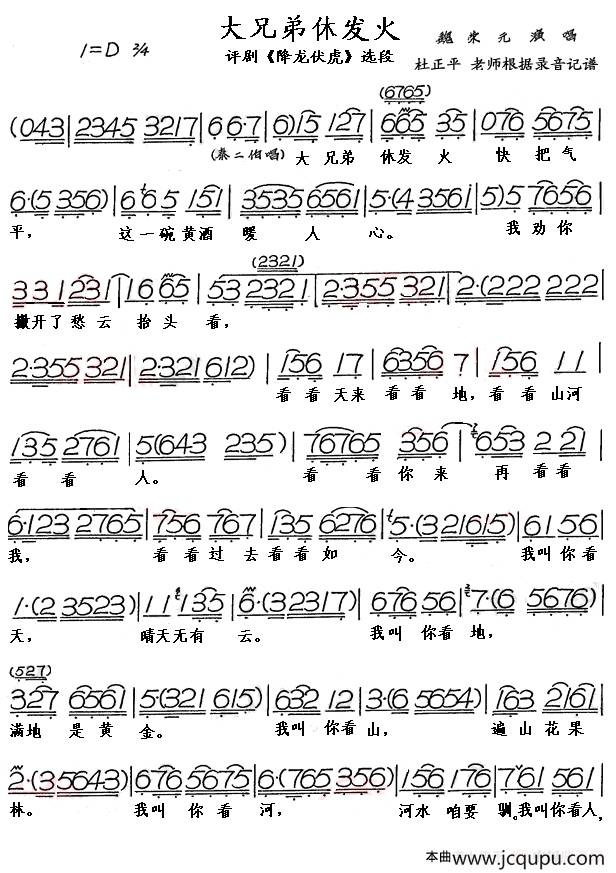 大兄弟休发火
1=D 2/4
评剧《降龙伏虎》选段
魏荣元演唱
杜正平 老师根据录音记谱
(6765)
(043|2345 3217|6 6·7|6)15 127|6665 35|076 5675|
(秦二伯唱) 大兄弟 休发 火 快 把气
6·(5 356)|665 151|3535 6561|5·(4 3561|5)5 7656|
平， 这一碗黄酒 暖 人 心。 我劝你
(2321)
331 231|16 65|53 2321|2355 321|2·(222 222|
撇开了愁云 抬头 看，
2·355 321|2·321 612)|156 17|6356 7|156 11|
看看天来看看 地，看看山河
135 2761|5(643 235)|76765 356|653 2 21|
看 看 人。 看 看你来 再看看
6·123 2765|756 767|135 6276|5·(321615)|61 56|
我， 看看过去看看如 今。 我叫你看
1·(23523)|11 135|6·(32317)|676 56|7·(6 5676)|
天， 晴天无有 云。 我叫 你看地，
(527)
327 6561|5·(321 615)|632 12|3·(6 5654)|163 2161|
满地 是黄 金。 我叫 你看山， 遍山花果
2·(35643)|676 5675|6·(765 356)|156 176|75 561|
林。 我叫 你看 河， 河水 咱要 驯。我叫你看人，
本曲 www.jcqupu.com